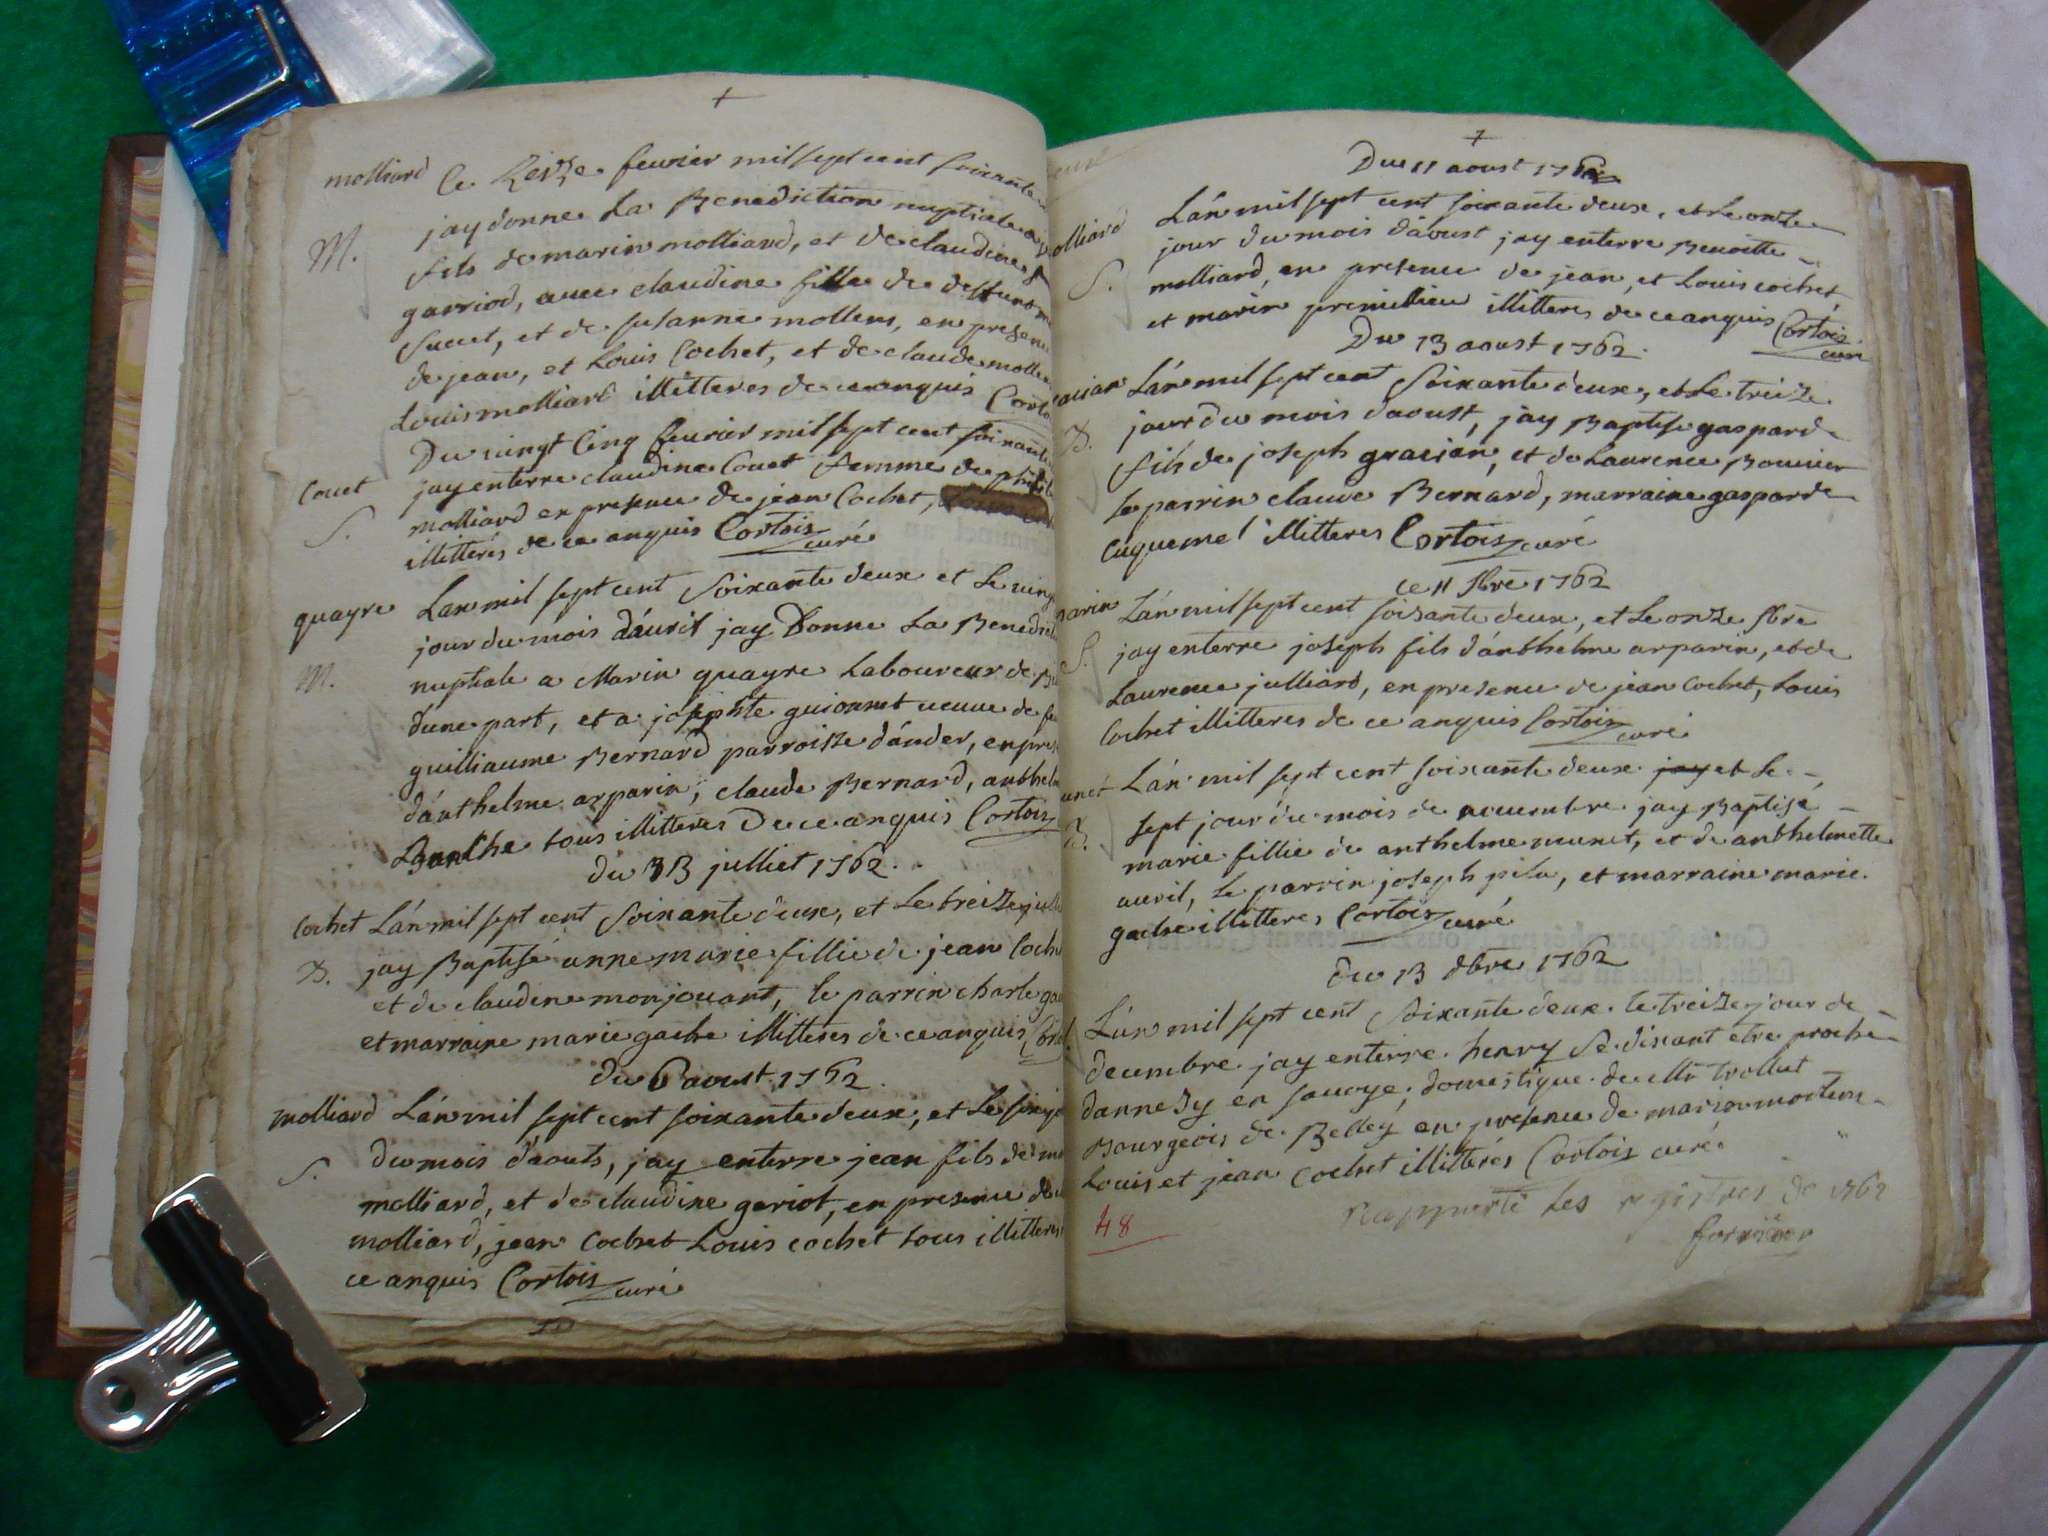 +
molliard
Ce seize fevrier mil sept cent soixante
M.
jay donne La Benediction nuptiale a
fils de marin molliard, et de claudine
garriod, avec claudine fille de deffunt
Sucet, et de susanne mollens, en presence
de jean, et Louis Cochet, et de claude
Louis molliard illitteres de ce anquis
Du vingt Cinq fevrier mil sept cent soixante
Couet
jay enterre claudine Couet femme de
S.
molliard en presence de jean Cochet,
illitterés de ce anquis Cortois curé
quayre
Lan mil sept cent Soixante deux et Le
jour du mois d'auril jay Donne La
M.
nuptiale a Marin quayre Laboureur de
d'une part, et a josephte guionnet ueuue de
guilliaume Bernard parroisse dánder,
dánthelme arparin, claude Bernard,
tous illitteres De ce anquis Cortois
du 13 julliet 1762.
Cochet
Lán mil sept cent Soixante deux, et Le treize
B.
jay Baptisé anne marie fillie de jean
et de claudine monjouant, le parrin charle
et marraine marie gache illitteres de ce anquis
du 6 aoust 1762.
molliard
Lán mil sept cent soixante deux, et Le
du mois d'aouts, jay enterre jean fils de
S.
molliard, et de claudine gariot, en presence
molliard, jean Cochet Louis cochet tous illitteres
ce anquis Cortois curé
+
Du 11 aoust 1762
olliard
Lán mil sept cent soixante deux, et Le onze
jour du mois dáoust jay enterre Benoitte
S.
molliard, en presence de jean, et Louis cochet,
et marin premillieu illitteres de ce anquis Cortois
curé
Du 13 aoust 1762.
acian
Lán mil sept cent Soixante deux, et Le treize
B.
jour du mois daoust, jay Baptise gaspard
fils de joseph gracian, et de Laurence Bouuier
le parrin claude Bernard, marraine gasparde
Cuquemel illitteres Cortois curé
ce 11 9bre 1762
parin
Lán mil sept cent soixante deux, et Le onze 9bre
S.
jay enterre joseph fils dánthelme arparin, et de
Laurence julliard, en presence de jean Cochet, Louis
Cochet illitteres de ce anquis Cortois curé
unet
Lán mil sept cent soixante deux jay et Le
sept jour du mois de nouembre jay Baptisé
B.
marie fillie de anthelme munet, et de anthelmette
auril, Le parrin joseph pilu, et marraine marie
gache illitteres Cortois curé
du 13 dbre 1762
Lán mil sept cent Soixante deux le treize jour de
decembre jay enterre henry Se disant etre proche
dannesy en sauoye, domestique de Mr trollut
Bourgeois de Belley en presence de marin
Louis et jean Cochet illitterés Cortois curé
48
Rapporté Les registres de 1762